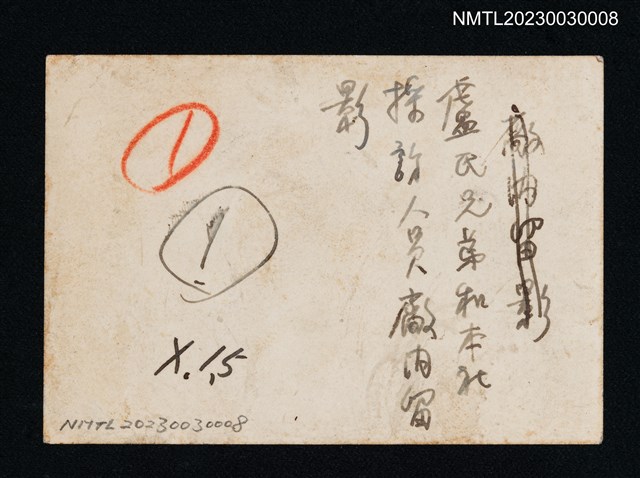 NMTL20230030008
廠內留影
盧氏兄弟和本社
採訪人員廠內留
影
1
1
X.1,5
NMTL20230030008